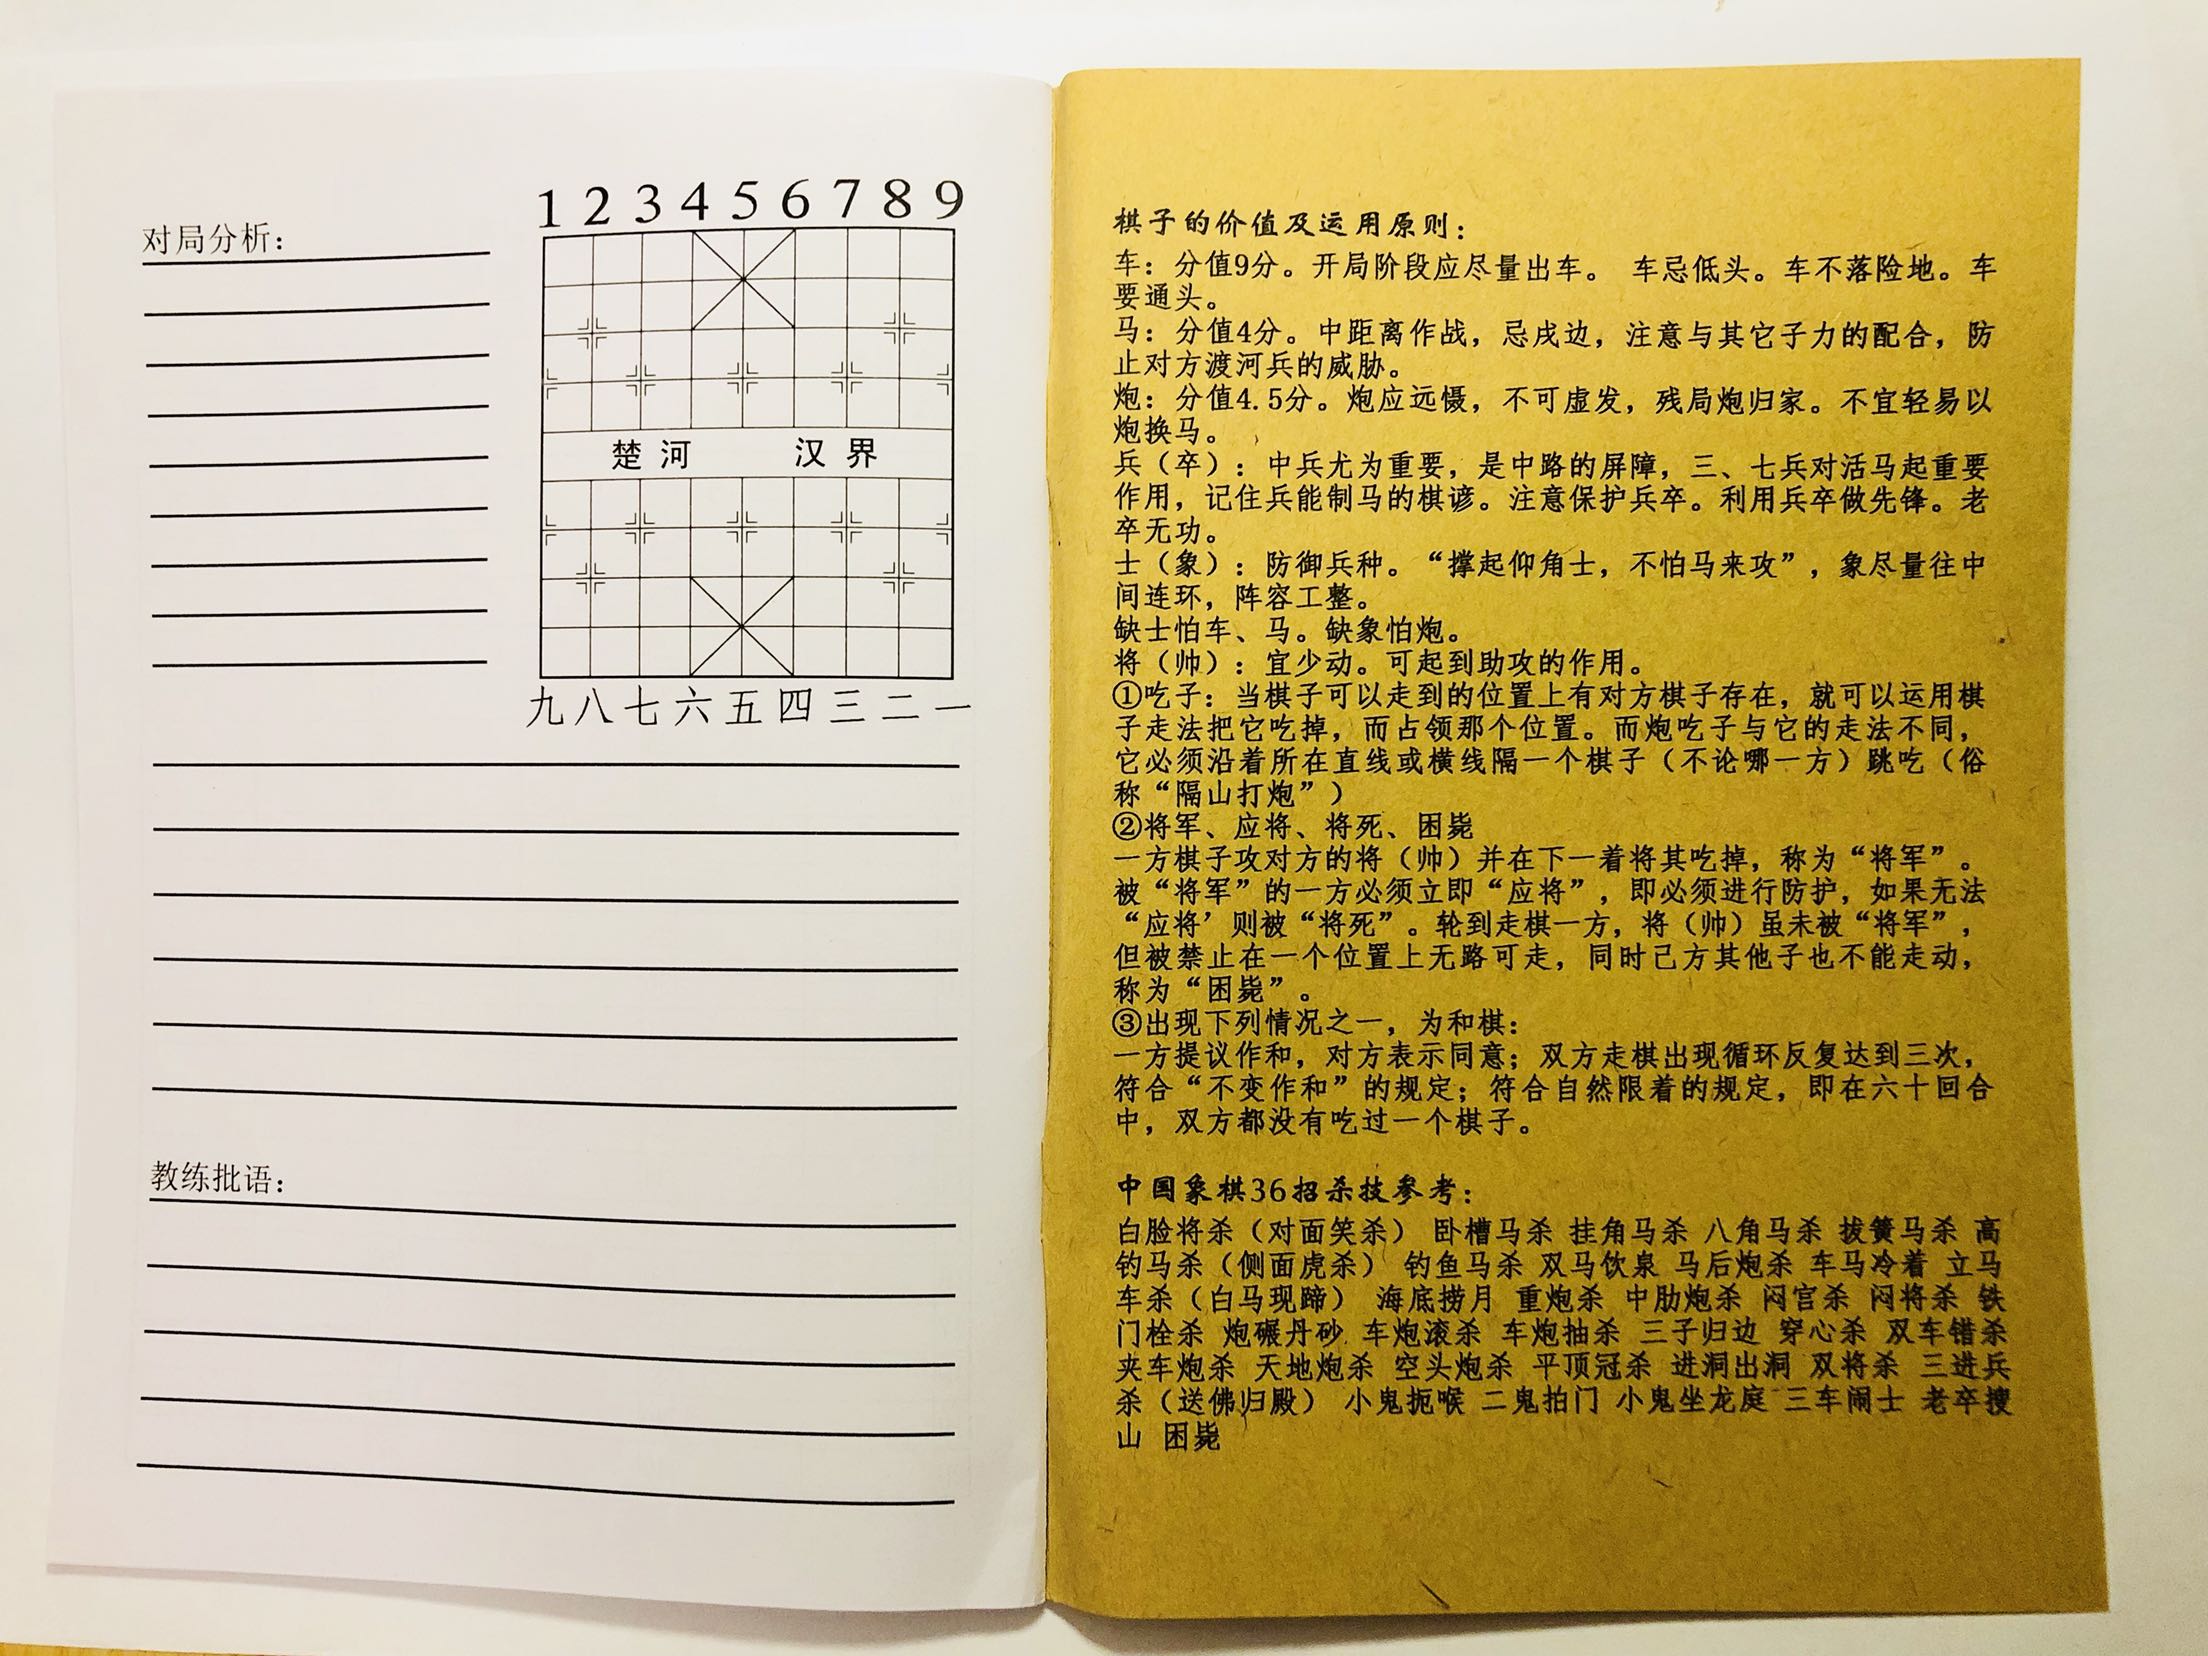 对局分析：
1 2 3 4 5 6 7 8 9
楚河 汉界
九八七六五四三二一
教练批语：
棋子的价值及运用原则：
车：分值9分。开局阶段应尽量出车。 车忌低头。车不落险地。车
要通头。
马：分值4分。中距离作战，忌戌边，注意与其它子力的配合，防
止对方渡河兵的威胁。
炮：分值4.5分。炮应远慑，不可虚发，残局炮归家。不宜轻易以
炮换马。
兵（卒）：中兵尤为重要，是中路的屏障，三、七兵对活马起重要
作用，记住兵能制马的棋谚。注意保护兵卒。利用兵卒做先锋。老
卒无功。
士（象）：防御兵种。“撑起仰角士，不怕马来攻”，象尽量往中
间连环，阵容工整。
缺士怕车、马。缺象怕炮。
将（帅）：宜少动。可起到助攻的作用。
①吃子：当棋子可以走到的位置上有对方棋子存在，就可以运用棋
子走法把它吃掉，而占领那个位置。而炮吃子与它的走法不同，
它必须沿着所在直线或横线隔一个棋子（不论哪一方）跳吃（俗
称“隔山打炮”）
②将军、应将、将死、困毙
一方棋子攻对方的将（帅）并在下一着将其吃掉，称为“将军”。
被“将军”的一方必须立即“应将”，即必须进行防护，如果无法
“应将’则被“将死”。轮到走棋一方，将（帅）虽未被“将军”，
但被禁止在一个位置上无路可走，同时己方其他子也不能走动，
称为“困毙”。
③出现下列情况之一，为和棋：
一方提议作和，对方表示同意；双方走棋出现循环反复达到三次，
符合“不变作和”的规定；符合自然限着的规定，即在六十回合
中，双方都没有吃过一个棋子。
中国象棋36招杀技参考：
白脸将杀（对面笑杀） 卧槽马杀 挂角马杀 八角马杀 拔簧马杀 高
钓马杀（侧面虎杀） 钓鱼马杀 双马饮泉 马后炮杀 车马冷着 立马
车杀（白马现蹄） 海底捞月 重炮杀 中肋炮杀 闷宫杀 闷将杀 铁
门栓杀 炮碾丹砂 车炮滚杀 车炮抽杀 三子归边 穿心杀 双车错杀
夹车炮杀 天地炮杀 空头炮杀 平顶冠杀 进洞出洞 双将杀 三进兵
杀（送佛归殿） 小鬼扼喉 二鬼拍门 小鬼坐龙庭 三车闹士 老卒搜
山 困毙